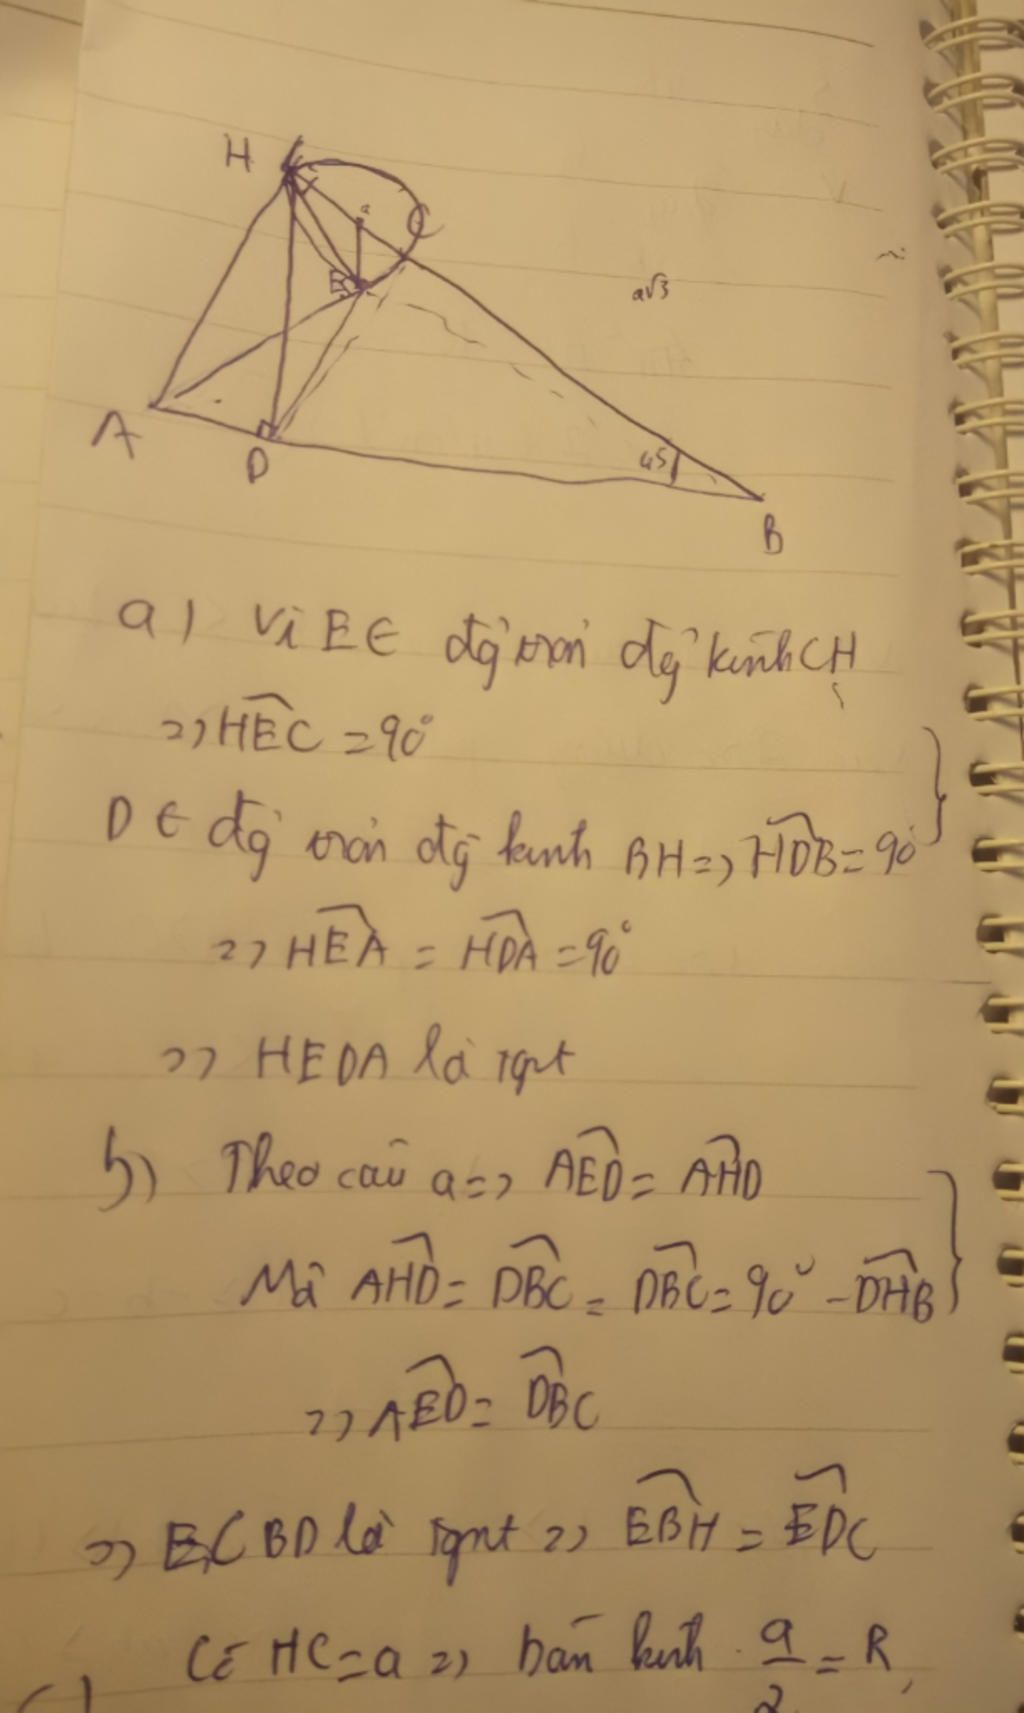 H
a
C
E
a√3
A
D
45
B
a) Vì E ∈ đg tròn đg kính CH
=> HEC = 90°
D ∈ đg tròn đg kính BH => HDB = 90°
=> HEA = HDA = 90°
=> HEDA là tgnt
b) Theo câu a => AED = AHD
Mà AHD = DBC = DBC = 90° - DHB
=> AED = DBC
=> ECBD là tgnt => EBH = EDC
Có HC = a => bán kính a/2 = R
c)